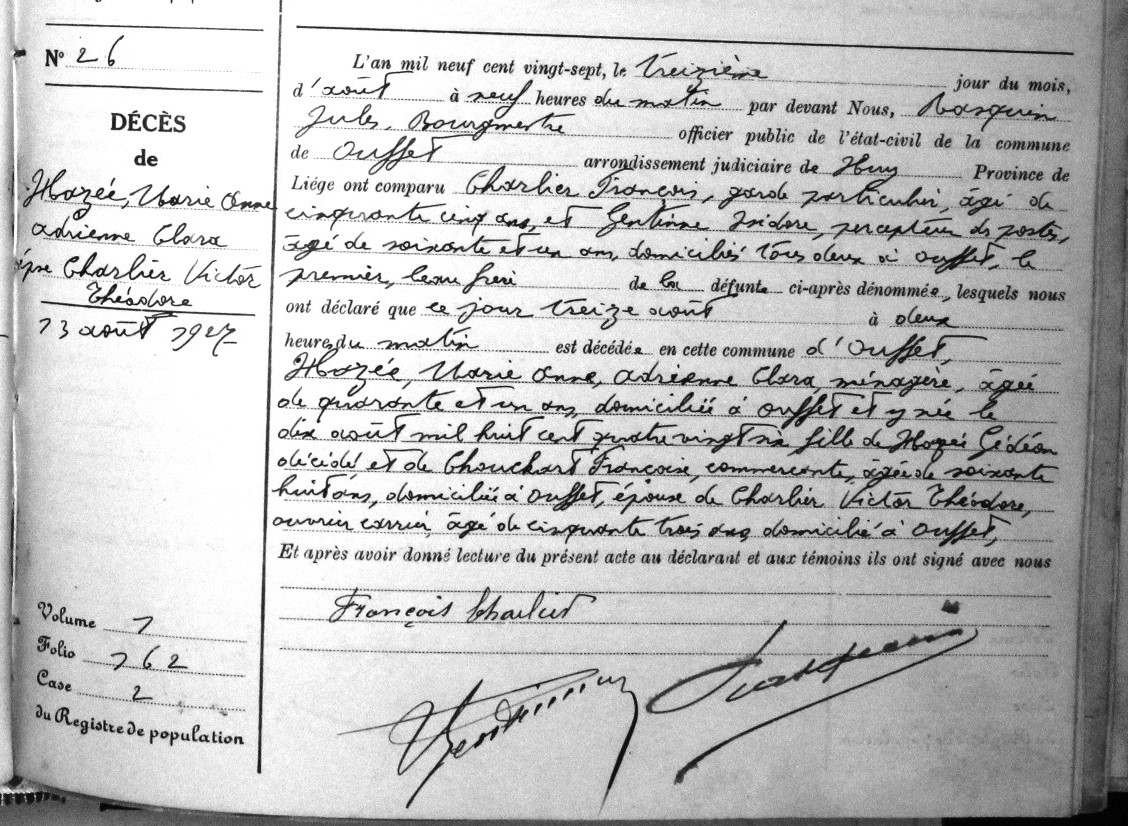 N° 26
DÉCÈS
de
Hazée, Marie Anne
Adrienne Clara
épse Charlier Victor
Théodore
13 août 1927
Volume 1
Folio 162
Case 2
du Registre de population
L'an mil neuf cent vingt-sept, le treizième jour du mois,
d'août à neuf heures du matin par devant Nous, Rasquin
Jules, Bourgmestre officier public de l'état-civil de la commune
de Ouffet arrondissement judiciaire de Huy Province de
Liége ont comparu Charlier François, garde particulier, âgé de
cinquante cinq ans, et Gentinne Isidore, percepteur des postes,
âgé de soixante et un ans, domiciliés tous deux à Ouffet, le
premier, beau frère de la défunte ci-après dénommée, lesquels nous
ont déclaré que ce jour treize août à deux
heures du matin est décédée en cette commune d'Ouffet,
Hazée, Marie Anne, Adrienne Clara, ménagère, âgée
de quarante et un ans, domiciliée à Ouffet et y née le
dix août mil huit cent quatre vingt six fille de Hazée Gédéon
décédé et de Chouchart Françoise, commerçante, âgée de soixante
huit ans, domiciliée à Ouffet, épouse de Charlier Victor Théodore,
ouvrier carrier, âgé de cinquante trois ans domicilié à Ouffet,
Et après avoir donné lecture du présent acte au déclarant et aux témoins ils ont signé avec nous
François Charlier